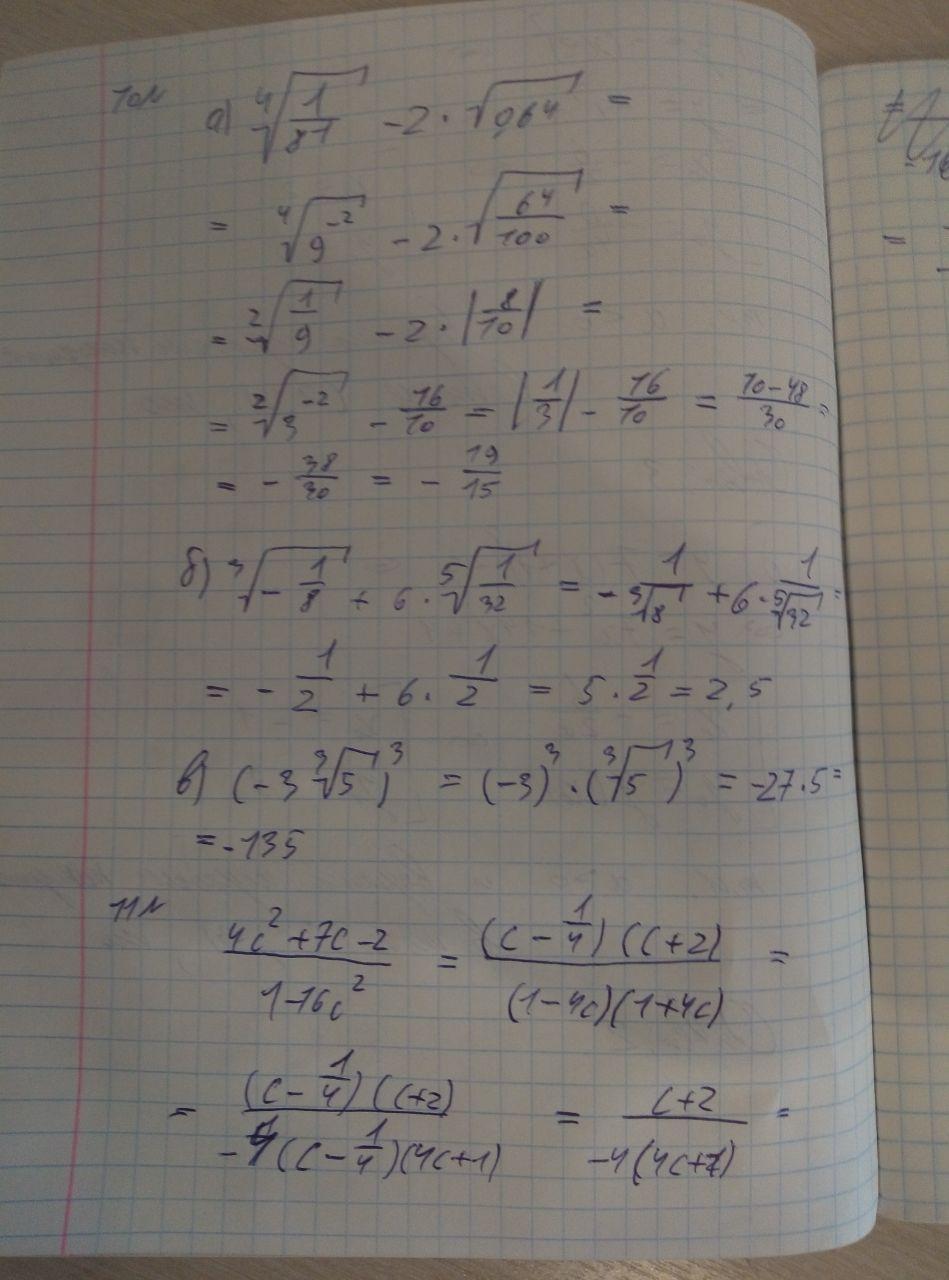 10н а) ⁴√(1/81) - 2 · √(0,64) =
= ⁴√(9⁻²) - 2 · √(64/100) =
= ²√(1/9) - 2 · |8/10| =
= ²√(3⁻²) - 16/10 = |1/3| - 16/10 = (10-48)/30 =
= - 38/30 = - 19/15
б) ³√(- 1/8) + 6 · ⁵√(1/32) = - 1/³√8 + 6 · 1/⁵√32 =
= - 1/2 + 6 · 1/2 = 5 · 1/2 = 2,5
в) (-3 ³√5)³ = (-3)³ · (³√5)³ = -27·5 =
= -135
11н
(4c² + 7c - 2)/(1-16c²) = ((c - 1/4)(c+2))/((1-4c)(1+4c)) =
= ((c - 1/4)(c+2))/(-4(c - 1/4)(4c+1)) = (c+2)/(-4(4c+1)) =